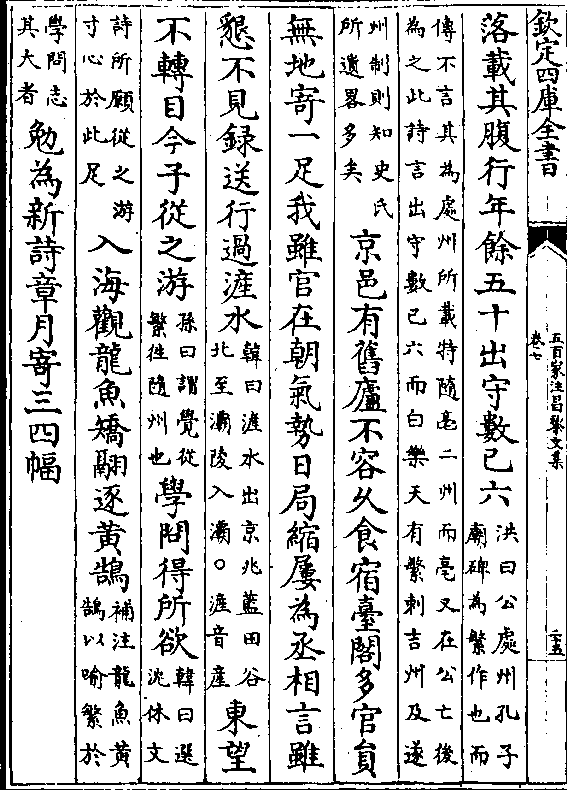 欽定四庫全書
五百家注昌黎文集
卷七
落載其腹行年餘五十出守數已六
洪曰公處州孔子
廟碑為繁作也而
傳不言其為處州所載特隨亳二州而亳又在公亡後
為之此詩言出守數已六而白樂天有繁刺吉州及遂
州制則知史氏
所遺畧多矣
京邑有舊廬不容久食宿臺閣多官員
無地寄一足我雖官在朝氣勢日局縮屢為丞相言雖
懇不見録送行過滻水
韓曰滻水出京兆藍田谷
北至灞陵入灞○滻音産
東望
不轉目今子從之游
孫曰謂覺從
繁往隨州也
學問得所欲
韓曰選
沈休文
詩所願從之游
寸心於此足
入海觀龍魚矯翮逐黄鵠
補注龍魚黄
鵠以喻繁於
學問志
其大者
勉為新詩章月寄三四幅